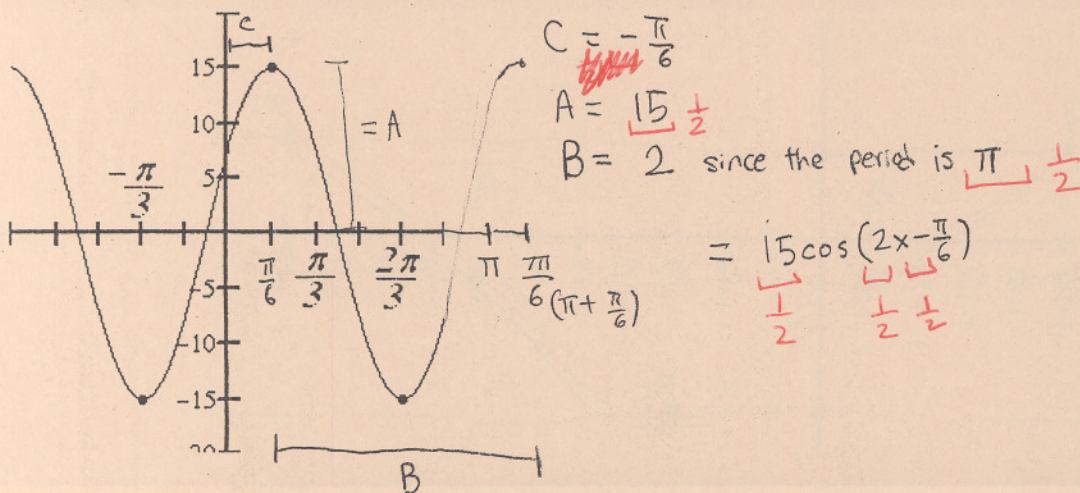 C
15
10
5
-5
-10
-15
= A
-π/3
π/6 π/3 2π/3 π 7π/6
(π + π/6)
B
C = -π/6
A = 15 1/2
B = 2 since the period is π 1/2
= 15 cos (2x - π/6)
1/2 1/2 1/2